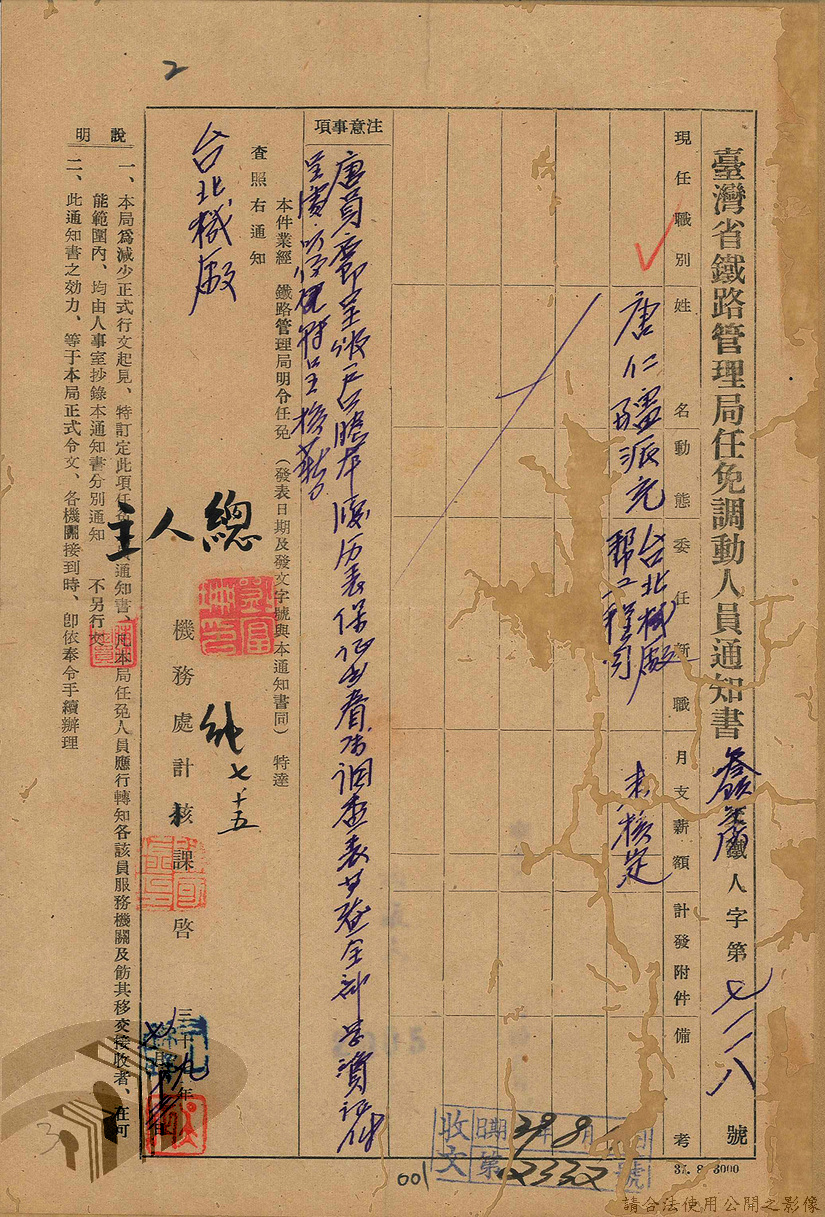 臺灣省鐵路管理局任免調動人員通知書
鐵人字第七一一八號
現任職別
姓名
動態
委任新職
月支薪額
計發附件
備考
唐仁疆
派充
台北機廠
幫工程司
未核定
注意事項
唐員應即呈繳戶口謄本履历表保証書
調查表
全部學資証件
本件業經 鐵路管理局明令任免(發表日期及發文字號與本通知書同)特達
查照右通知
台北機廠
總人主
機務處計核課啓
純七、十五
三十九年
說明
一、本局爲減少正式行文起見、特訂定此項任免通知書、凡本局任免人員應行轉知各該員服務機關及飭其移交接收者、在可
能範圍內、均由人事室抄錄本通知書分別通知 不另行文
二、此通知書之効力、等于本局正式令文、各機關接到時、卽依奉令手續辦理
收文
日期 39年8月
第12332號
37. 8 3000
001
2
3
請合法使用公開之影像